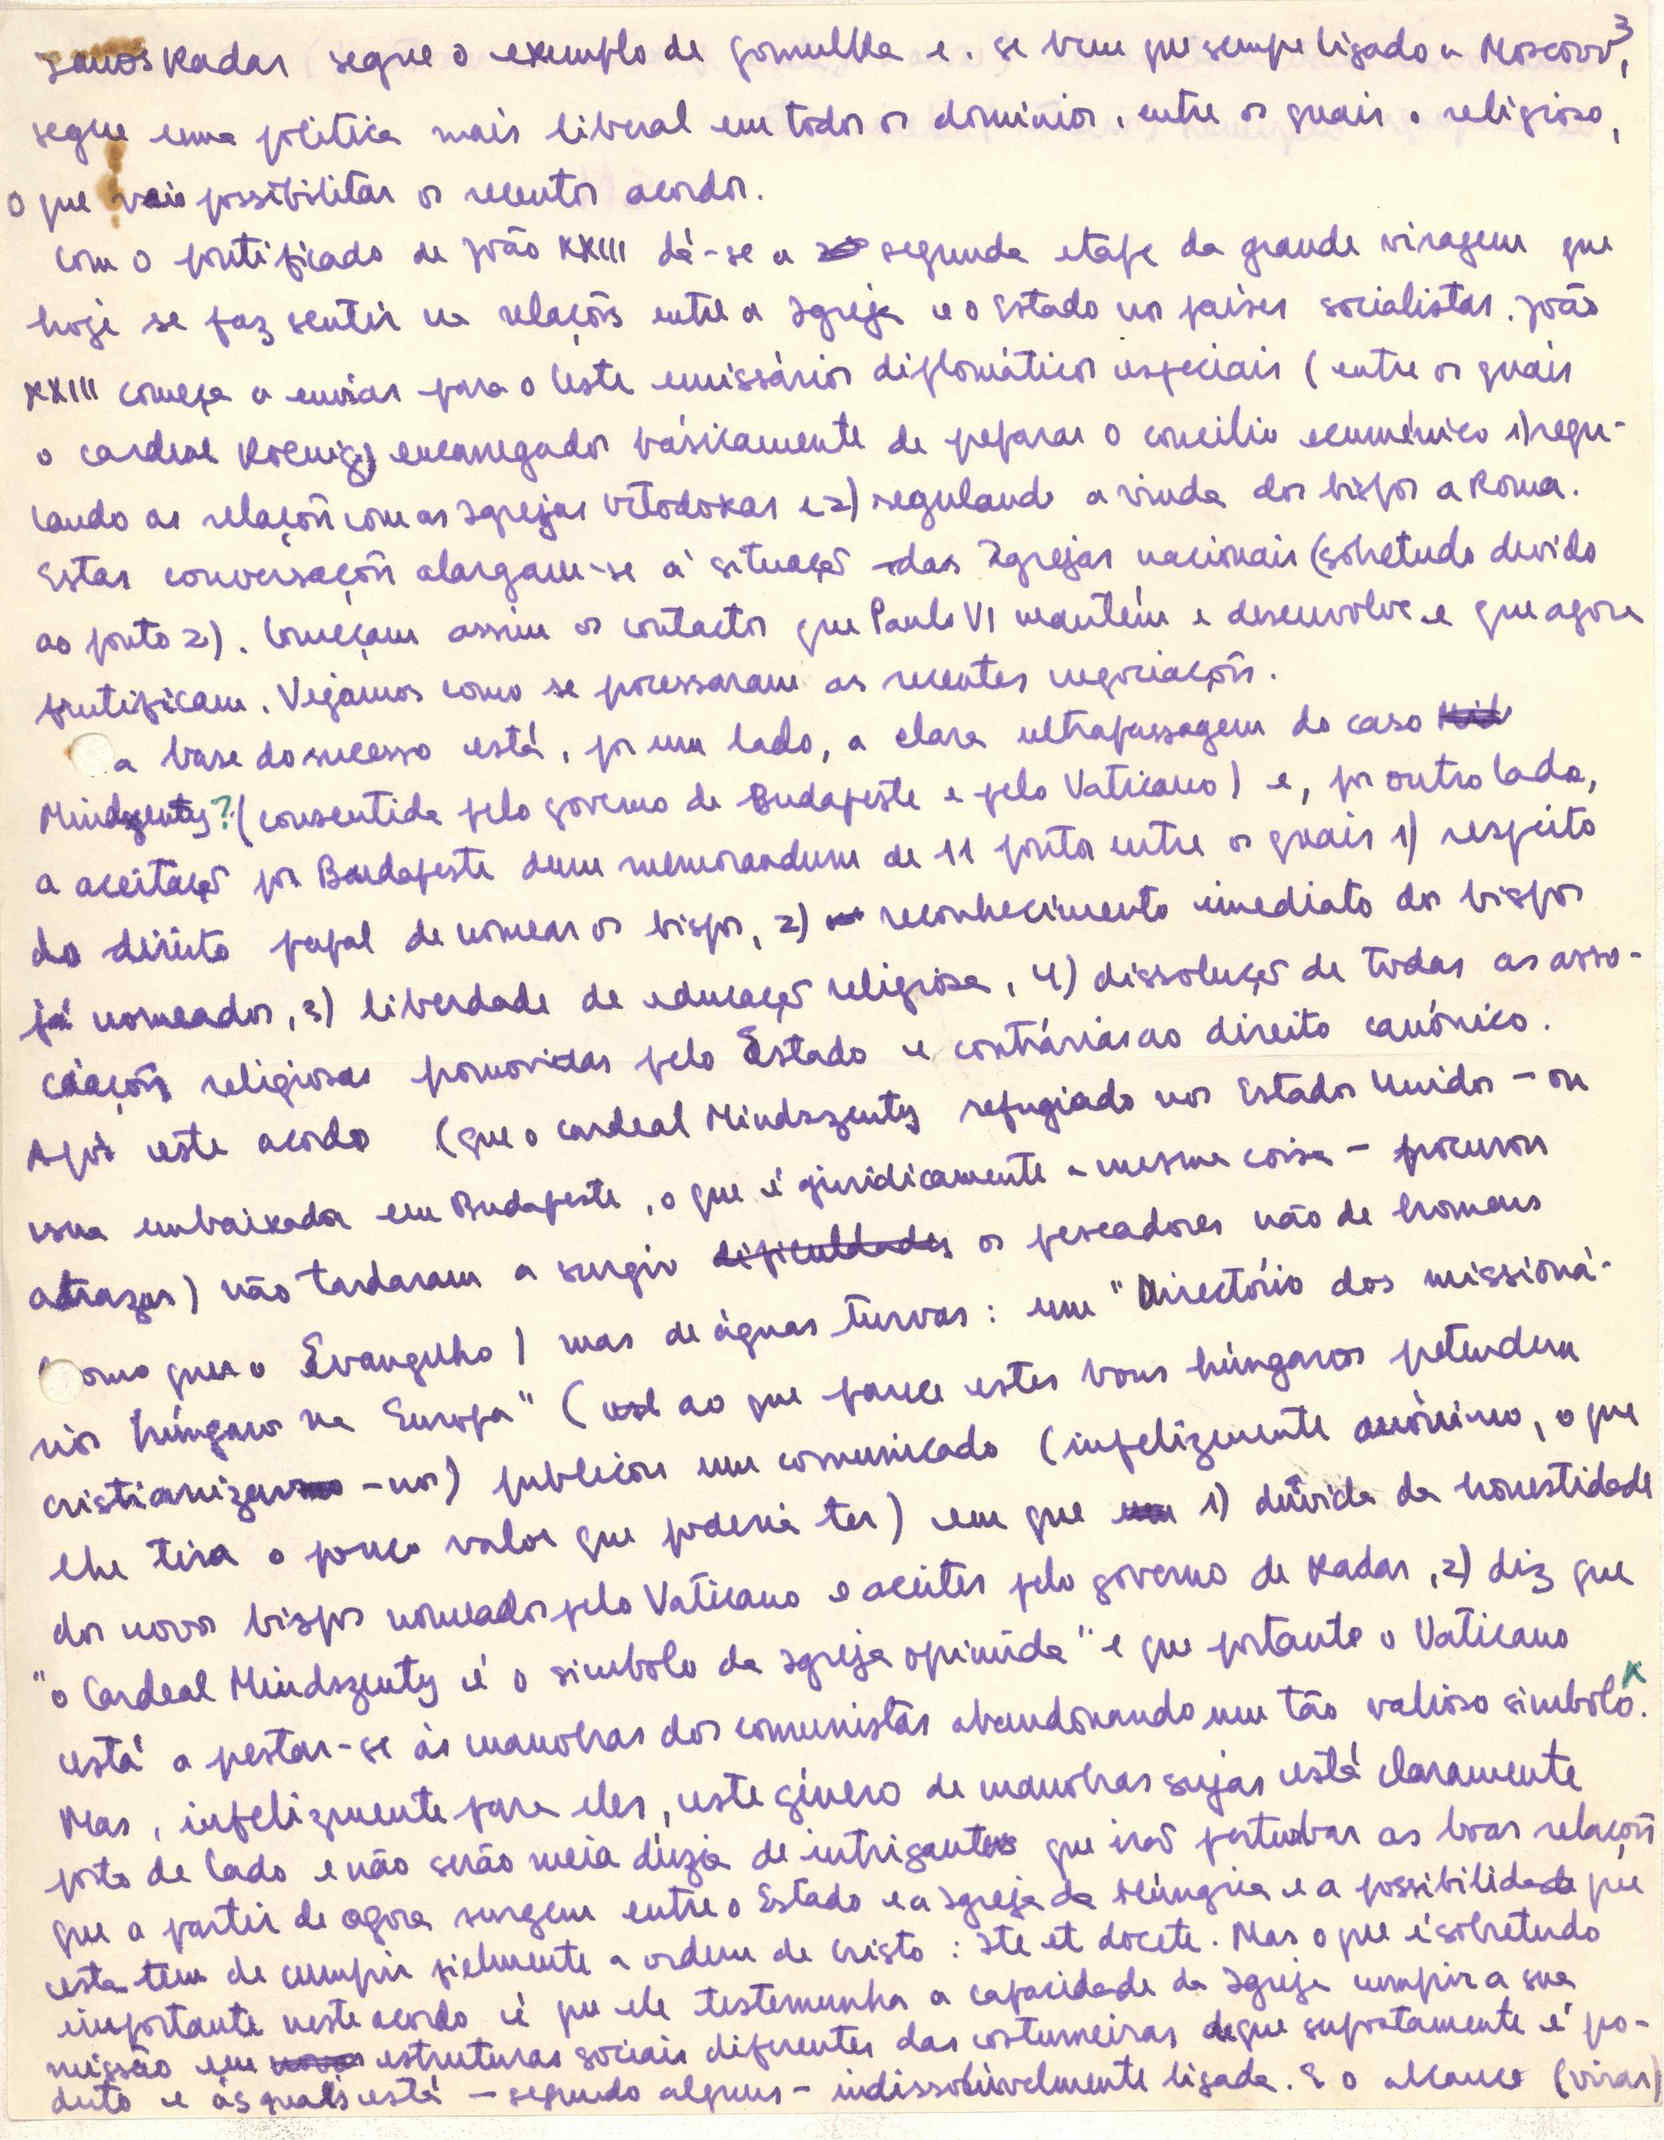 3
Janos Kadar segue o exemplo de Gomulka e. se bem que sempre ligado a Moscovo,
segue uma politica mais liberal em todos os dominios, entre os quais o religioso,
o que veio possibilitar os recentes acordos.
Com o pontificado de João XXIII dá-se a segunda etape da grande viragem que
hoje se faz sentir na relações entre a Igreja e o Estado nos países socialistas. João
XXIII começa a enviar para o Leste emissários diplomáticos especiais (entre os quais
o cardeal Koenig) encarregados básicamente de preparar o concilio ecuménico 1) regu-
lando as relações com as Igrejas Ortodoxas e 2) regulando a vinda dos bispos a Roma.
Estas conversações alargam-se à situação das Igrejas nacionais (sobretudo devido
ao ponto 2). Começam assim os contactos que Paulo VI mantém e desenvolve e que agora
frutificam. Vejamos como se processaram as recentes negociações.
a base do sucesso está, por um lado, a clara ultrapassagem do caso
Mindszenty? (consentida pelo governo de Budapeste e pelo Vaticano) e, por outro lado,
a aceitação por Budapeste dum memorandum de 11 pontos entre os quais 1) respeito
do direito papal de nomear os bispos, 2) reconhecimento imediato dos bispos
já nomeados, 3) liberdade de educação religiosa, 4) dissolução de todas as asso-
ciações religiosas promovidas pelo Estado e contrárias ao direito canónico.
Após este acordo (que o cardeal Mindszenty refugiado nos Estados Unidos - ou
sua embaixada em Budapeste, o que é giuridicamente a mesma coisa - procurou
atrazar) não tardaram a surgir dificuldades os pescadores não de homens
como quer o Evangelho) mas de águas turvas: um "Directório dos missioná-
rios húngaros na Europa" (ao que parece estes bons húngaros pretendem
cristianizar-nos) publicou um comunicado (infelizmente anónimo, o que
lhe tira o pouco valor que poderia ter) em que 1) dúvida da honestidade
dos novos bispos nomeados pelo Vaticano e aceites pelo governo de Kadar, 2) diz que
"o Cardeal Mindszenty é o simbolo da Igreja oprimida" e que portanto o Vaticano
está a prestar-se às manobras dos comunistas abandonando um tão valioso simbolo.
Mas, infelizmente para eles, este género de manobras sujas está claramente
posto de lado e não serão meia dúzia de intrigantes que irão perturbar as boas relações
que a partir de agora surgem entre o Estado e a Igreja da Húngria e a possibilidade que
esta tem de cumprir fielmente a ordem de Cristo: Ite et docete. Mas o que é sobretudo
importante neste acordo é que ele testemunha a capacidade da Igreja cumprir a sua
missão em estruturas sociais diferentes das costumeiras de que supostamente é pro-
duto e às quais está - segundo alguns - indissolúvelmente ligada. E o alcance (virar)